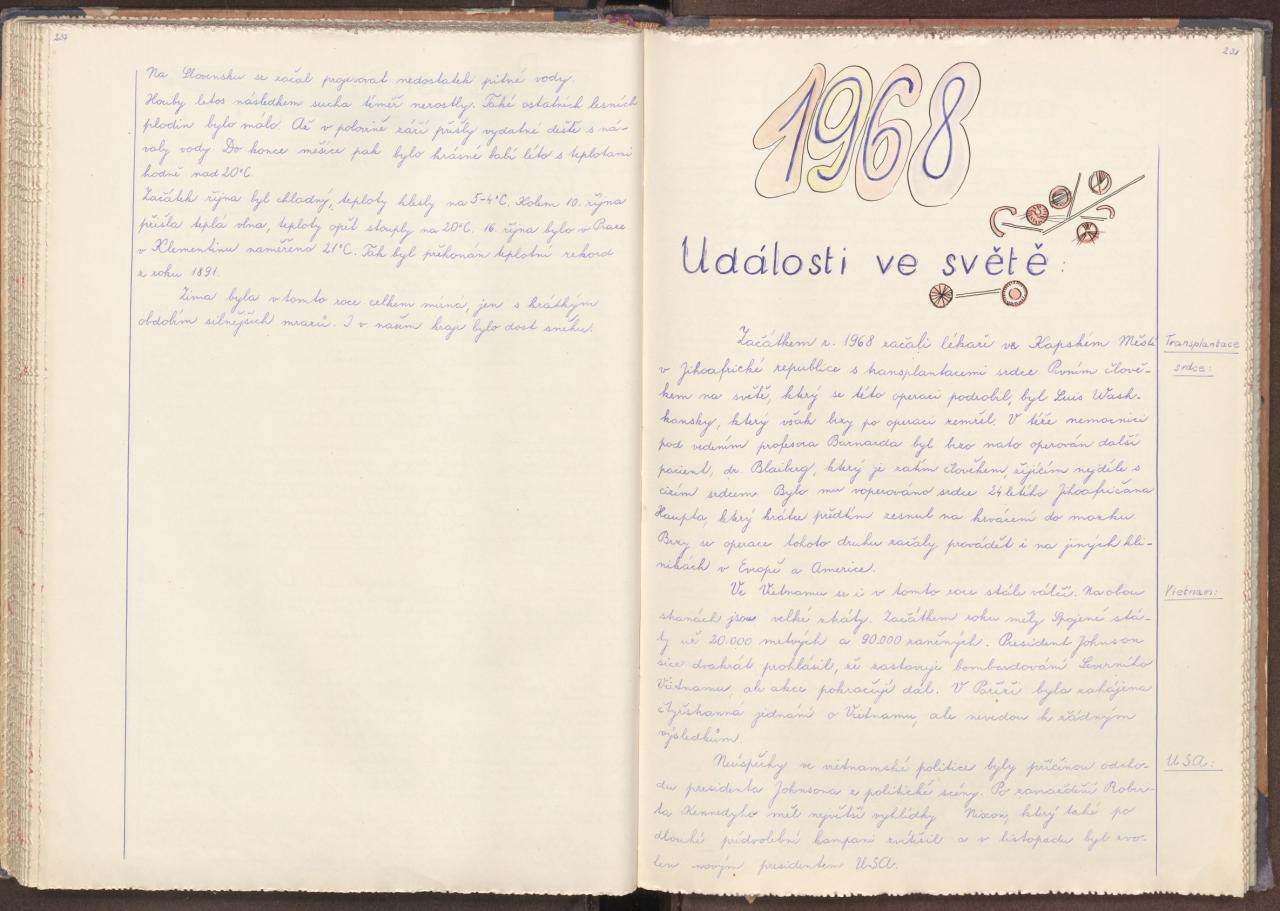 237
Na Slovensku se začal projevovat nedostatek pitné vody.
Houby letos následkem sucha téměř nerostly. Také ostatních lesních
plodin bylo málo. Až v polovině září přišly vydatné deště s ná-
valy vody. Do konce měsíce pak bylo krásné babí léto s teplotami
hodně nad 20°C.
Začátek října byl chladný, teploty klesly na 5-4°C. Kolem 10. října
přišla teplá vlna, teploty opět stouply na 20°C. 16. října bylo v Praze
v Klementinu naměřeno 21°C. Tak byl překonán teplotní rekord
z roku 1891.
Zima byla v tomto roce celkem mírná, jen s krátkým
obdobím silnějších mrazů. I v našem kraji bylo dost sněhu.
1968
Události ve světě:
Začátkem r. 1968 začali lékaři ve Kapském Městě
Transplantace
srdce:
v Jihoafrické republice s transplantacemi srdce. Prvním člově-
kem na světě, který se této operaci podrobil, byl Luis Wash-
kansky, který však brzy po operaci zemřel. V téže nemocnici
pod vedením profesora Barnarda byl brzo nato operován další
pacient, dr. Blaiberg, který je zatím člověkem, žijícím nejdéle s
cizím srdcem. Bylo mu voperováno srdce 24letého Jihoafričana
Haupta, který krátce předtím zesnul na krvácení do mozku.
Brzy se operace tohoto druhu začaly provádět i na jiných kli-
nikách v Evropě a Americe.
Ve Vietnamu se i v tomto roce stále válčí. Na obou
Vietnam:
stranách jsou velké ztráty. Začátkem roku měly Spojené stá-
ty už 20.000 mrtvých a 90.000 raněných. President Johnson
sice dvakrát prohlásil, že zastavuje bombardování Severního
Vietnamu, ale akce pokračují dál. V Paříži byla zahájena
čtyřstranná jednání o Vietnamu, ale nevedou k žádným
výsledkům.
Neúspěchy ve vietnamské politice byly příčinou odcho-
USA:
du presidenta Johnsona z politické scény. Po zavraždění Rober-
ta Kennedyho měl největší vyhlídky Nixon, který také po
dlouhé předvolební kampani zvítězil a v listopadu byl zvo-
len novým presidentem USA.